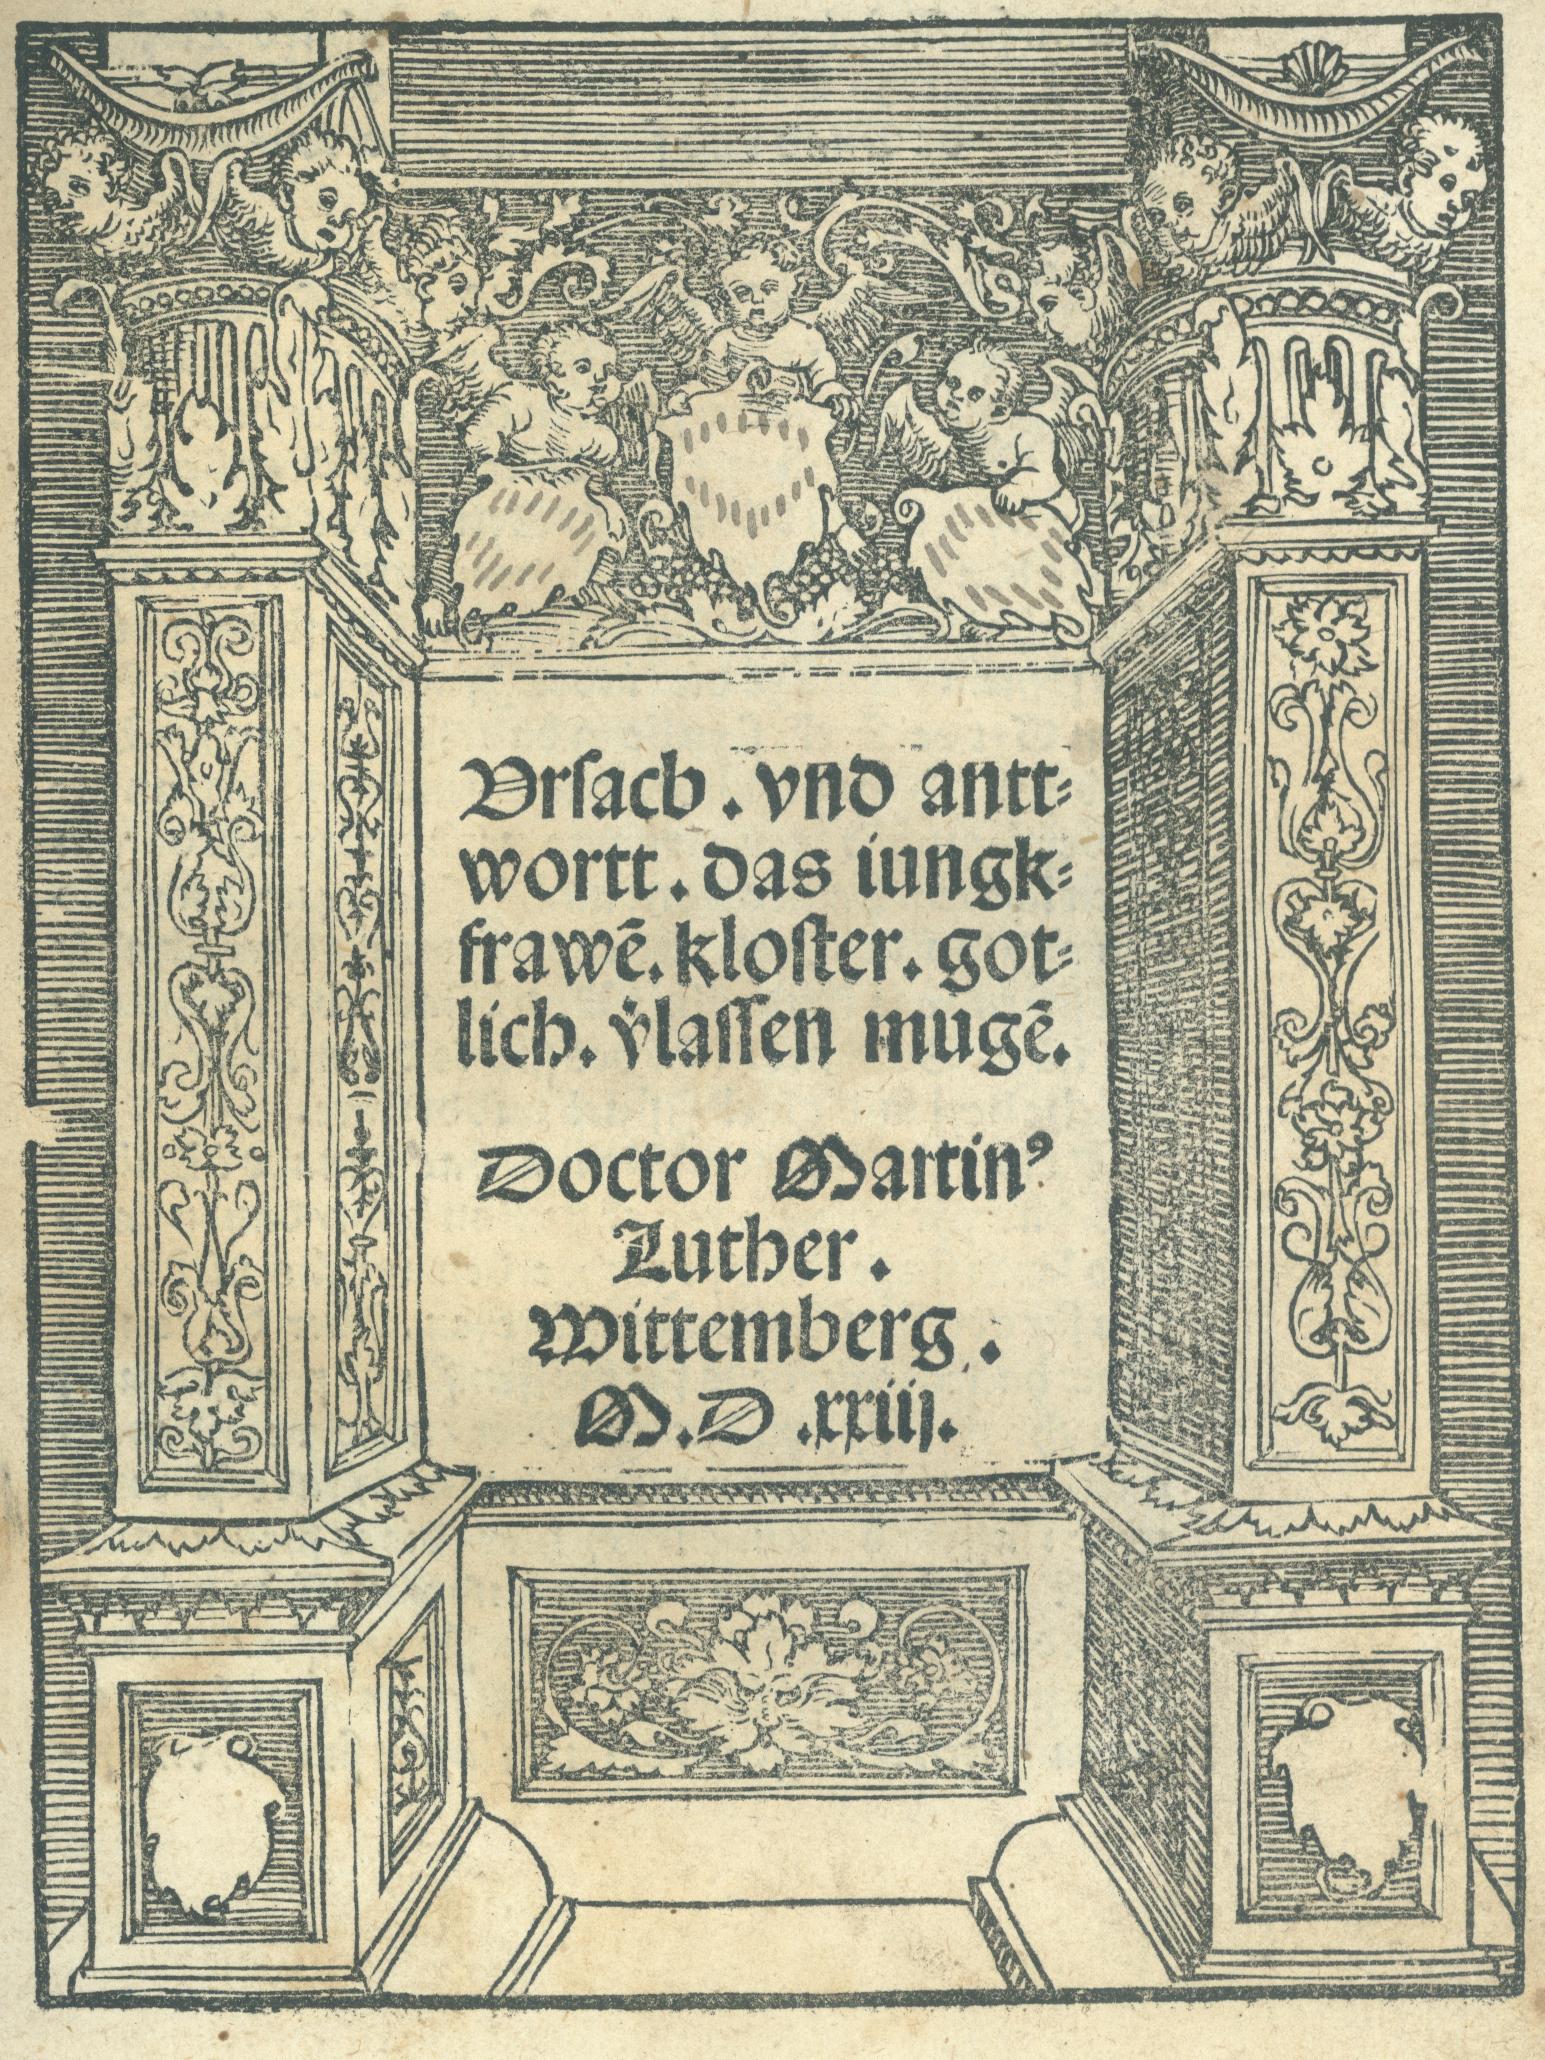 Vrsach . vnd antt⸗
wortt . das iungk⸗
frawē . kloster . got⸗
lich . v̾lassen mugē .
Doctor Martinꝰ
Luther .
Wittemberg .
M . D . xxiij .